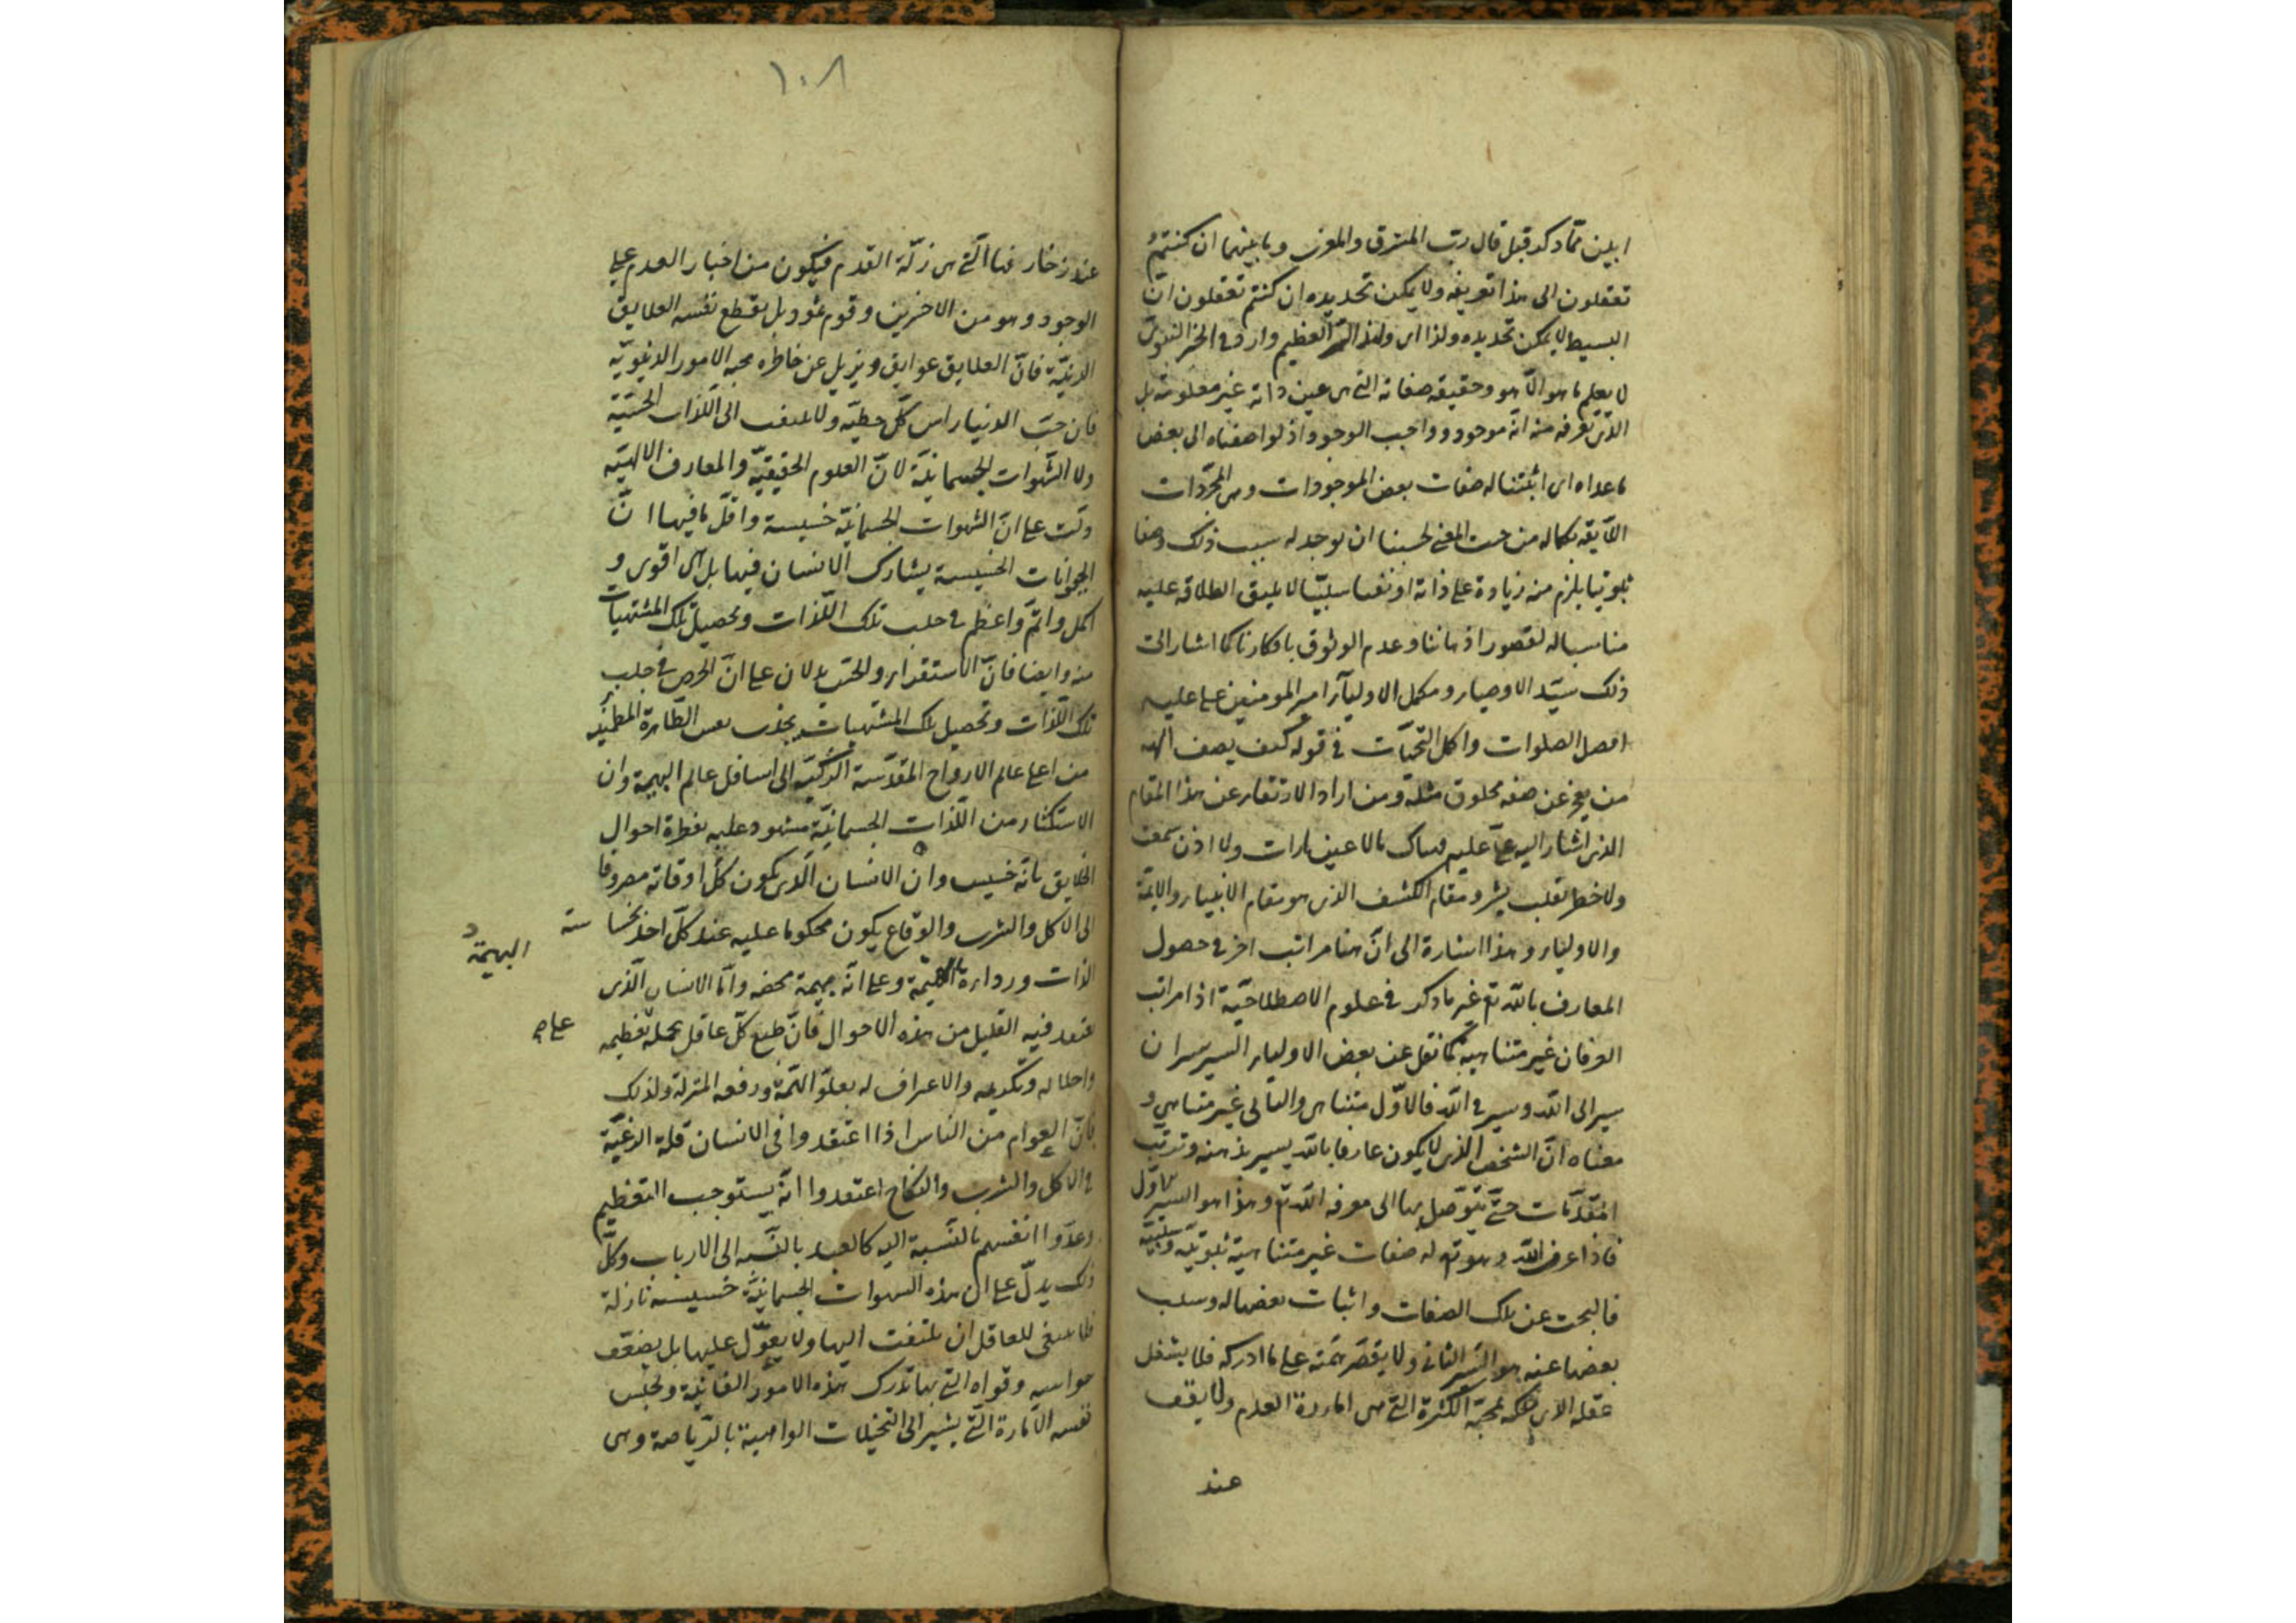 ابين مما ذكر قبل قال رب المشرق والمغرب وما بينهما ان كنتم
تعقلون الى هذا تعريفه ولا يمكن تحديده ان كنتم تعقلون ان
البسيط لا يمكن تحديده ولذا اى ولهذا السر العظيم وارد فى الخبر النبوى
لا يعلم ما هو الا هو وحقيقة صفاته التى هى عين ذاته غير معلومة بل
الذى نعرفه منه انه موجود وواجب الوجود اذ لو اضفناه الى بعض
ما عداه اى اثبتنا له صفات بعض الموجودات وهى المجردات
اللايقة بكماله من حيث المعنى لحسبنا ان يوجد له بسبب ذلك وصفا
ثبوتيا يلزم منه زيادة على ذاته او نفيا سلبيا لا يليق اطلاقه عليه
مناسبا له لقصور اذهاننا وعدم الوثوق بافكارنا كما اشار الى
ذلك سيد الاوصياء ومكمل الاولياء امير المومنين على عليه
افضل الصلوات واكمل التحيات فى قوله كيف يصف الهه
من يعجز عن صفة مخلوق مثله ومن اراد الارتقاء عن هذا المقام
الذى اشار اليه على عليه فهناك ما لا عين رات ولا اذن سمعت
ولا خطر بقلب بشر ومقام الكشف الذى هو مقام الانبياء والائمة
والاولياء وهذا اشارة الى ان هنا مراتب اخر فى حصول
المعارف بالله تع غير ما ذكر فى علوم الاصطلاحية اذ مراتب
العرفان غير متناهية كما نقل عن بعض الاولياء السير سيران
سير الى الله وسير فى الله فالاول متناهى والثانى غير متناهى و
معناه ان الشخص الذى لا يكون عارفا بالله يسير بذهنه وترتب
المقدمات حتى يتوصل بها الى معرفة الله تع وهذا هو السير الاول
فاذا عرف الله وهو تع له صفات غير متناهية ثبوتية وسلبية
فالبحث عن تلك الصفات واثبات بعضها له وسلب
بعضها عنه هو السير الثانى ولا يقصر همته على ما ادركه فلا يشغل
عقله الذى ملكه بمحبة الكثرة التى هى امارة العدم ولا يقف
عند
١٠٨
عند زخارفها التى هى زلة القدم فيكون من اختار العدم على
الوجود وهو من الاخسرين وقوم ثمود بل يقطع نفسه العلايق
الدنية فان العلايق عوايق ويزيل عن خاطره محبة الامور الدنيوية
فان حب الدنيا راس كل خطية ولا يلتفت الى اللذات الحسية
ولا الشهوات الجسمانية لان العلوم الحقيقية والمعارف الالهية
دلت على ان الشهوات الجسمانية خسيسة واقل ما فيها ان
الحيوانات الخسيسة يشارك الانسان فيها بل هى اقوى و
اكمل واتم واعظم فى جلب تلك اللذات وتحصيل تلك المشتهيات
منه وايضا فان الاستقراء والحس يدلان على ان الحرص فى جلب
تلك اللذات وتحصيل تلك المشتهيات يجذب نفس الطاهرة المطمئنه
من اعلى عالم الارواح المقدسة الزكية الى اسافل عالم البهيمة وان
الاستكثار من اللذات الجسمانية مشهود عليه بفطرة احوال
الخلايق بانه خسيس وان الانسان الذى يكون كل اوقاته مصروفا
الى الاكل والشرب والوقاع يكون محكوما عليه عند كل احد بخسا سة
البهيمة
الذات ورداءة وعلى انه بهيمة محضة واما الانسان الذى
يعتقد فيه القليل من هذه الاحوال فان طبع كل عاقل يحمله تعظيمه
على
واجلاله وتكريمه والاعتراف له بعلو الهمة ورفعة المنزلة ولذلك
فان العوام من الناس اذا اعتقدوا فى الانسان قلة الرغبة
فى الاكل والشرب والنكاح اعتقدوا انه يستوجب التعظيم
وعدوا انفسهم بالنسبة اليه كالعبد بالنسبة الى الارباب وكل
ذلك يدل على ان هذه الشهوات الجسمانية خسيسة نازلة
فلا ينبغى للعاقل ان يلتفت اليها ولا يعول عليها بل يضعف
حواسه وقواه التى بها تدرك هذه الامور الفانية ويحبس
نفسه الامارة التى يشير الى التخيلات الواهية بالرياضة وهى